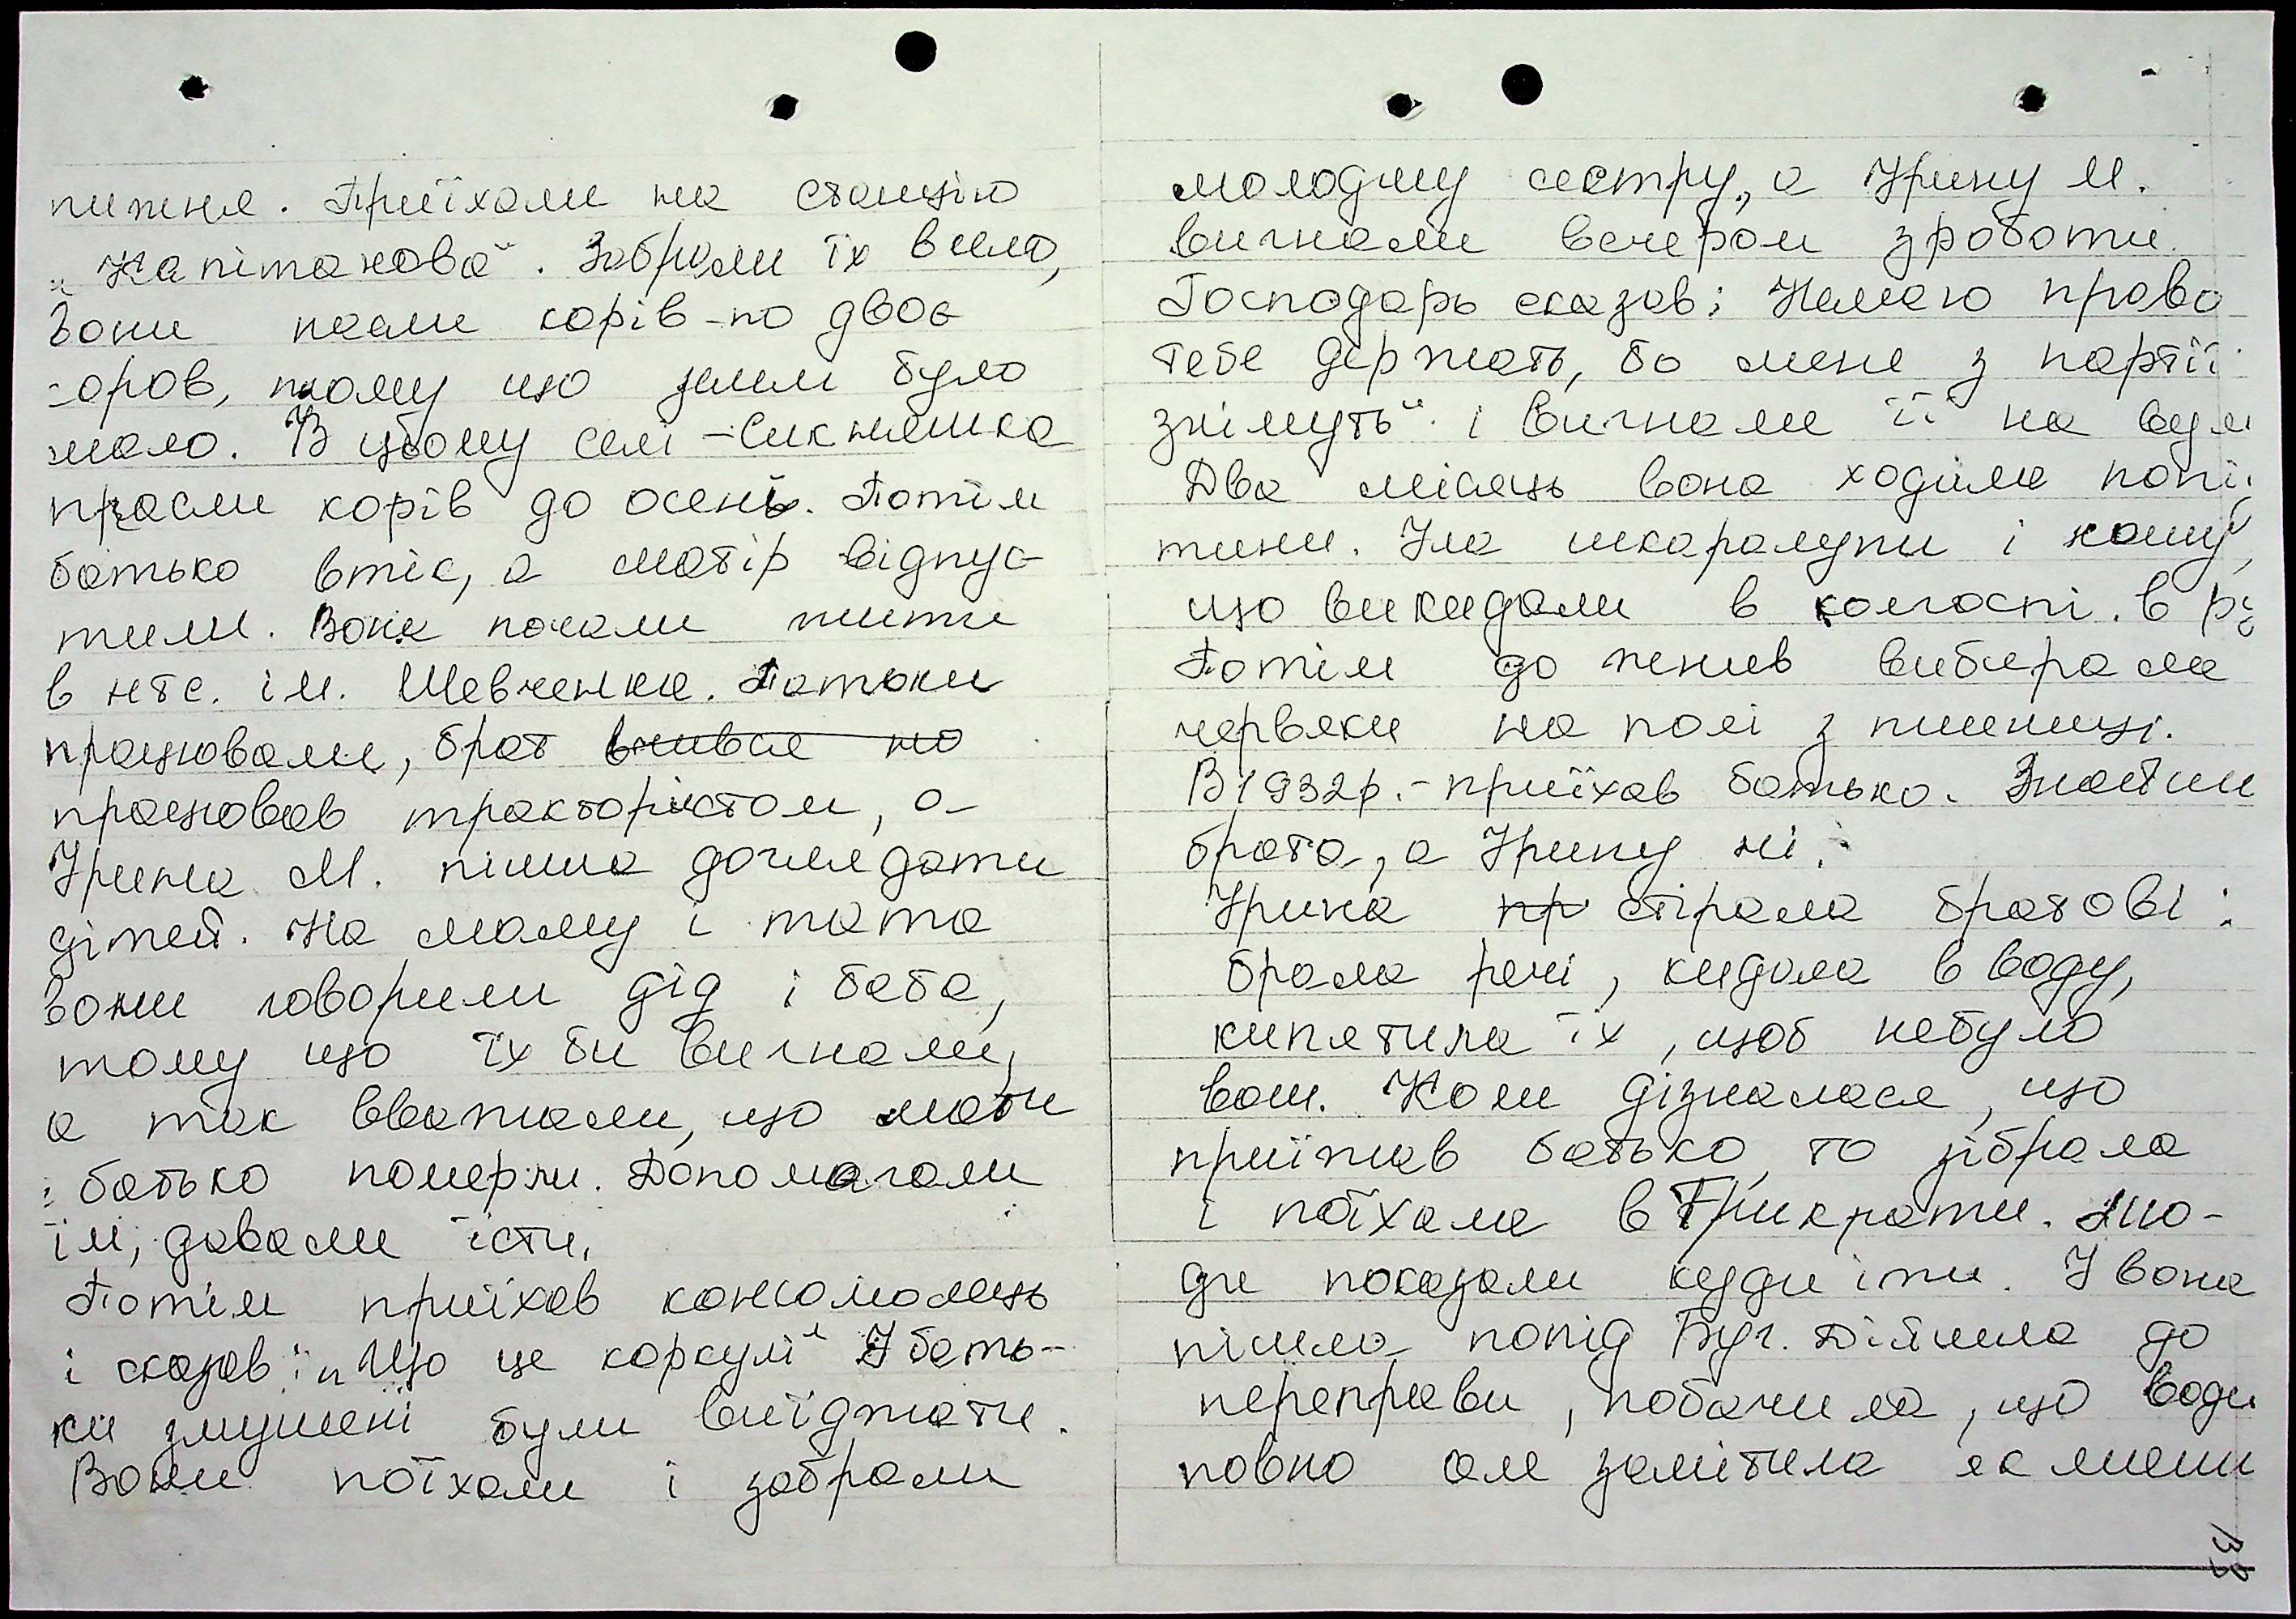 тижня. Приїхали на станцію
„Капітаново". Забрали їх в село,
вони пасли корів - по двоє
коров, тому що землі було
мало. В цьому селі - Сикнянка
прасли корів до осені. Потім
батько втік, а матір відпус-
тили. Вони почали жити
в нтс. ім. Шевченка. Батьки
працювали, брат вчився на
працював трактористом, а
Ірина М. пішла доглядати
дітей. На маму і тата
вони говорили дід і баба,
тому що їх би вигнали,
а так вважали, що мати
і батько померли. Допомагали
їм, давали їсти.
Потім приїхав комсомолець
і сказав: „Що це коркулі" І бать-
ки змушені були виїджати.
Вони поїхали і забрали
молодшу сестру, а Ірину М.
вигнали вечером зроботи.
Господарь сказав: Немаю право
тебе держать, бо мене з партії
знімуть" і вигнали її на вули
Два місяць вона ходила попі
тини. Їла шкаралупи і кашу,
що викидали в колгоспі. в рі
Потім до жнив вибирала
червяки на полі з пшениці.
В 1932р. - приїхав батько. Знайшли
брата, а Ірину ні.
Ірина пр стірала братові:
брала речі, кидала в воду,
кипятила їх, щоб небуло
вош. Коли дізналася, що
приїжав батько, то зібрала
і поїхала в Трикрати. Лю-
ди показали куди іти. І вона
пішла попід Буг. Дійшла до
переправи, побачила, що води
повно але замітила як люди
133